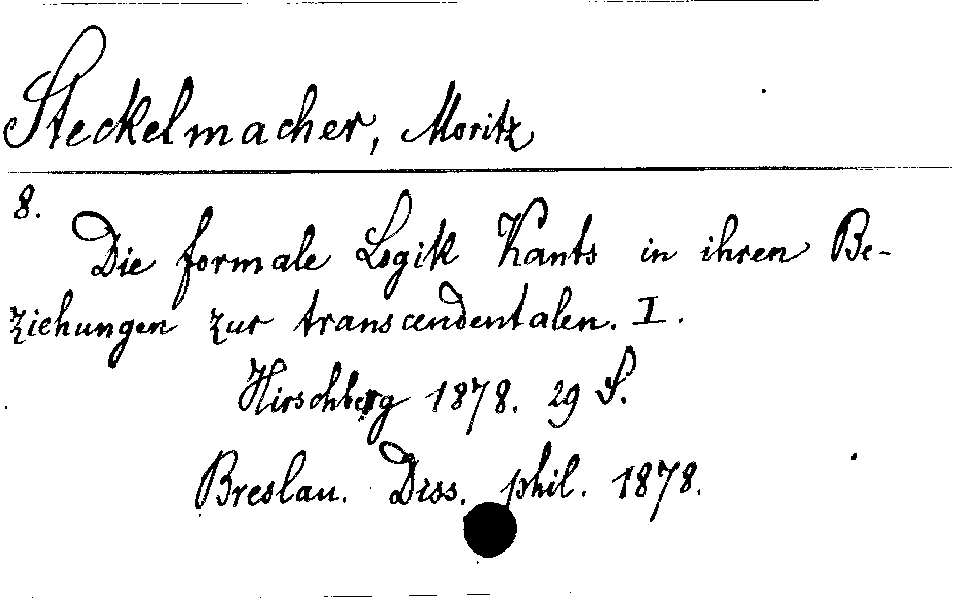 Steckelmacher, Moritz
8.
Die formale Logik Kants in ihren Be-
ziehungen zur transcendentalen. I.
Hirschberg 1878. 29 S.
Breslau. Diss. phil. 1878.